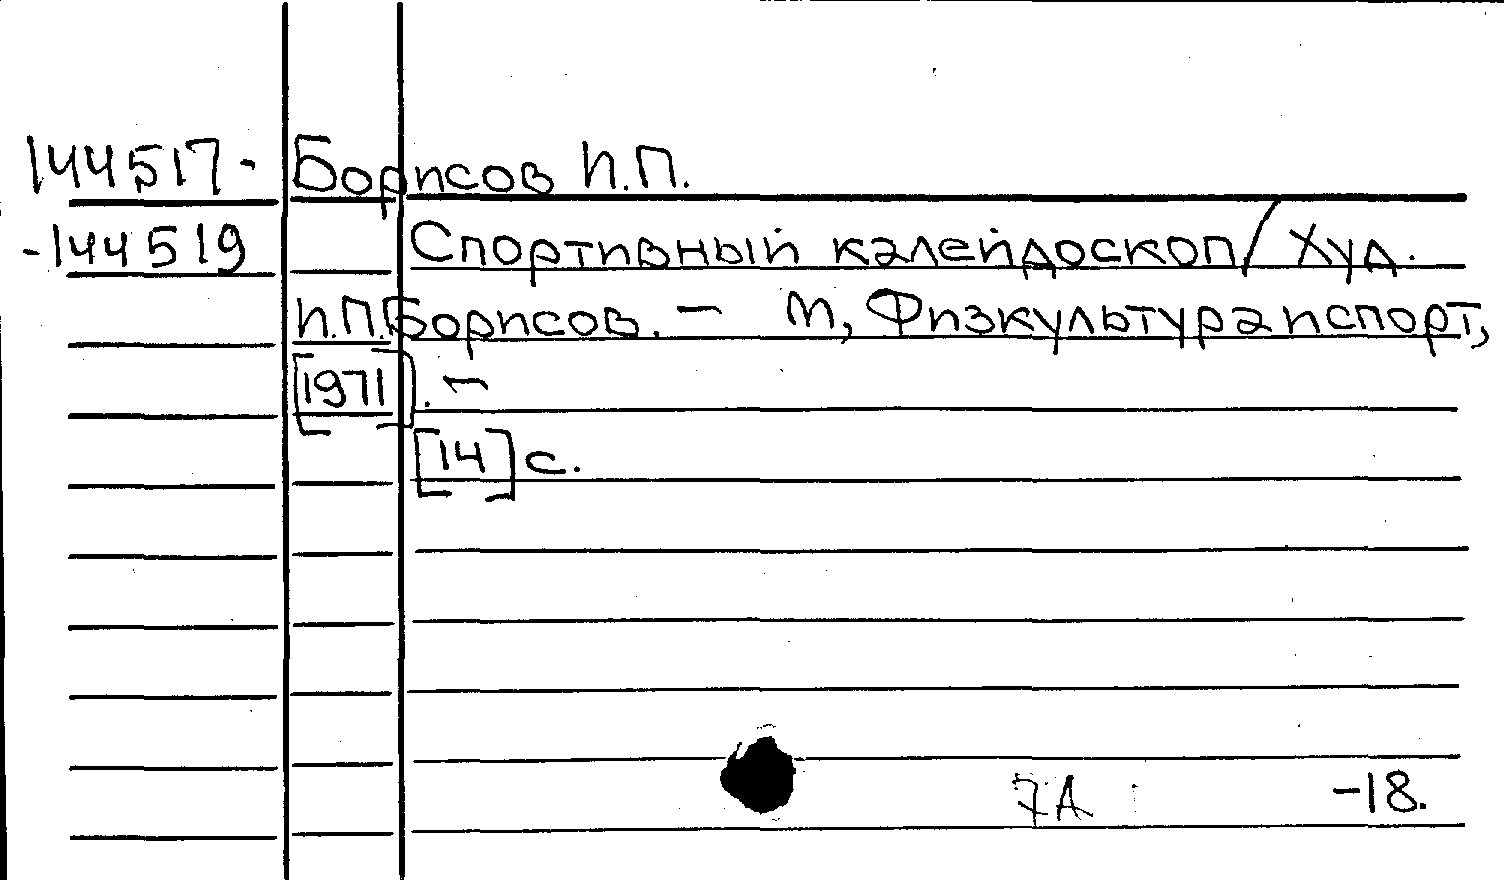 144517- Борисов И.П.
-144519 Спортивный калейдоскоп/ Худ.
И.П.Борисов. – М, Физкультура и спорт,
[1971]. –
[14] с.
7А -18.